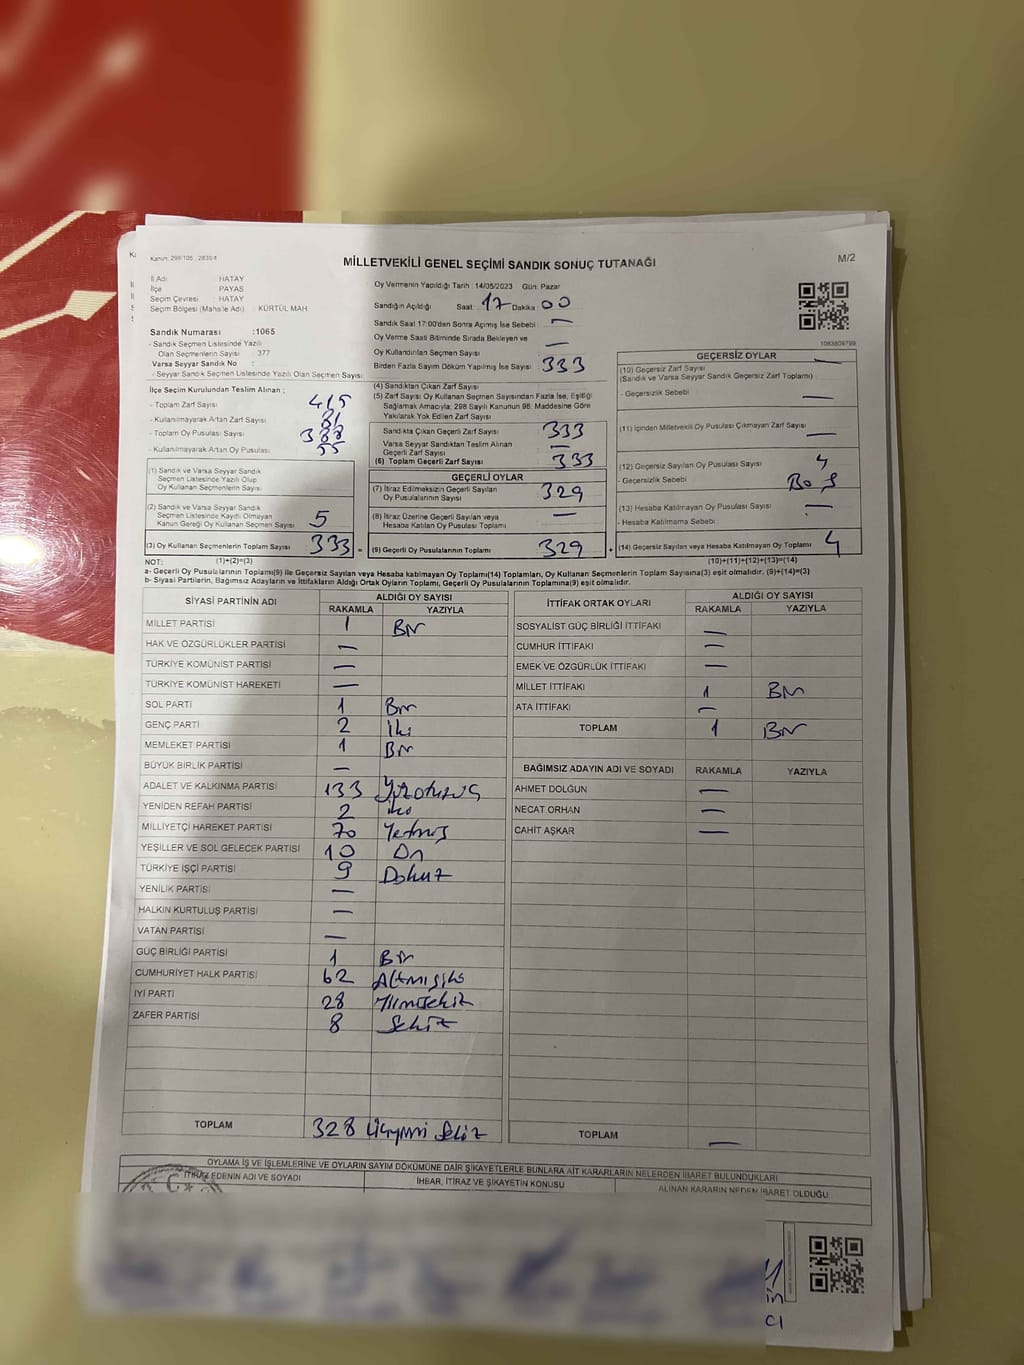 Kanun: 298/105 , 2839/4
MİLLETVEKİLİ GENEL SEÇİMİ SANDIK SONUÇ TUTANAĞI
M/2
İl Adı HATAY
İlçe PAYAS
Seçim Çevresi HATAY
Seçim Bölgesi (Mahalle Adı) : KÜRTÜL MAH
Sandık Numarası :1065
- Sandık Seçmen Listesinde Yazılı
Olan Seçmenlerin Sayısı : 377
Varsa Seyyar Sandık No :
- Seyyar Sandık Seçmen Listesinde Yazılı Olan Seçmen Sayısı
İlçe Seçim Kurulundan Teslim Alınan ;
- Toplam Zarf Sayısı 415
- Kullanılmayarak Artan Zarf Sayısı
- Toplam Oy Pusulası Sayısı
- Kullanılmayarak Artan Oy Pusulası 55
(1) Sandık ve Varsa Seyyar Sandık
Seçmen Listesinde Yazılı Olup
Oy Kullanan Seçmenlerin Sayısı
(2) Sandık ve Varsa Seyyar Sandık
Seçmen Listesinde Kayıtlı Olmayan
Kanun Gereği Oy Kullanan Seçmen Sayısı 5
(3) Oy Kullanan Seçmenlerin Toplam Sayısı 333 =
Oy Vermenin Yapıldığı Tarih : 14/05/2023 Gün: Pazar
Sandığın Açıldığı Saat 17 Dakika 00
Sandık Saat 17:00'den Sonra Açımış İse Sebebi : —
Oy Verme Saati Bitiminde Sırada Bekleyen ve
Oy Kullandırılan Seçmen Sayısı —
Birden Fazla Sayım Döküm Yapılmış İse Sayısı 333
(4) Sandıktan Çıkan Zarf Sayısı
(5) Zarf Sayısı Oy Kullanan Seçmen Sayısından Fazla İse, Eşitliği
Sağlamak Amacıyla; 298 Sayılı Kanunun 98. Maddesine Göre
Yakılarak Yok Edilen Zarf Sayısı
Sandıkta Çıkan Geçerli Zarf Sayısı 333
Varsa Seyyar Sandıktan Teslim Alınan
Geçerli Zarf Sayısı —
(6) Toplam Geçerli Zarf Sayısı 333
GEÇERLİ OYLAR
(7) İtiraz Edilmeksizin Geçerli Sayılan
Oy Pusulalarının Sayısı 329
(8) İtiraz Üzerine Geçerli Sayılan veya
Hesaba Katılan Oy Pusulası Toplamı —
(9) Geçerli Oy Pusulalarının Toplamı 329 +
1083809799
GEÇERSİZ OYLAR
(10) Geçersiz Zarf Sayısı —
(Sandık ve Varsa Seyyar Sandık Geçersiz Zarf Toplamı)
- Geçersizlik Sebebi —
(11) İçinden Milletvekili Oy Pusulası Çıkmayan Zarf Sayısı —
(12) Geçersiz Sayılan Oy Pusulası Sayısı 4
- Geçersizlik Sebebi Boş
(13) Hesaba Katılmayan Oy Pusulası Sayısı —
- Hesaba Katılmama Sebebi
(14) Geçersiz Sayılan veya Hesaba Katılmayan Oy Toplamı 4
NOT: (1)+(2)=(3) (10)+(11)+(12)+(13)=(14)
a- Geçerli Oy Pusulalarının Toplamı(9) ile Geçersiz Sayılan veya Hesaba katılmayan Oy Toplamı(14) Toplamları, Oy Kullanan Seçmenlerin Toplam Sayısına(3) eşit olmalıdır. (9)+(14)=(3)
b- Siyasi Partilerin, Bağımsız Adayların ve İttifakların Aldığı Ortak Oyların Toplamı, Geçerli Oy Pusulalarının Toplamına(9) eşit olmalıdır.
SİYASİ PARTİNİN ADI ALDIĞI OY SAYISI
RAKAMLA YAZIYLA
MİLLET PARTİSİ 1 Bir
HAK VE ÖZGÜRLÜKLER PARTİSİ —
TÜRKİYE KOMÜNİST PARTİSİ —
TÜRKİYE KOMÜNİST HAREKETİ —
SOL PARTİ 1 Bir
GENÇ PARTİ 2 İki
MEMLEKET PARTİSİ 1 Bir
BÜYÜK BİRLİK PARTİSİ —
ADALET VE KALKINMA PARTİSİ 133 Yüzotuzüç
YENİDEN REFAH PARTİSİ 2 iki
MİLLİYETÇİ HAREKET PARTİSİ 70 Yetmiş
YEŞİLLER VE SOL GELECEK PARTİSİ 10 On
TÜRKİYE İŞÇİ PARTİSİ 9 Dokuz
YENİLİK PARTİSİ —
HALKIN KURTULUŞ PARTİSİ —
VATAN PARTİSİ —
GÜÇ BİRLİĞİ PARTİSİ 1 Bir
CUMHURİYET HALK PARTİSİ 62 Altmışiki
İYİ PARTİ 28 Yirmisekiz
ZAFER PARTİSİ 8 Sekiz
TOPLAM 328 Üçyüzyirmi Sekiz
İTTİFAK ORTAK OYLARI ALDIĞI OY SAYISI
RAKAMLA YAZIYLA
SOSYALİST GÜÇ BİRLİĞİ İTTİFAKI —
CUMHUR İTTİFAKI —
EMEK VE ÖZGÜRLÜK İTTİFAKI —
MİLLET İTTİFAKI 1 Bir
ATA İTTİFAKI —
TOPLAM 1 Bir
BAĞIMSIZ ADAYIN ADI VE SOYADI RAKAMLA YAZIYLA
AHMET DOLĞUN —
NECAT ORHAN —
CAHİT AŞKAR —
TOPLAM —
OYLAMA İŞ VE İŞLEMLERİNE VE OYLARIN SAYIM DÖKÜMÜNE DAİR ŞİKAYETLERLE BUNLARA AİT KARARLARIN NELERDEN İBARET BULUNDUKLARI
İTİRAZ EDENİN ADI VE SOYADI İHBAR, İTİRAZ VE ŞİKAYETİN KONUSU ALINAN KARARIN NEDEN İBARET OLDUĞU